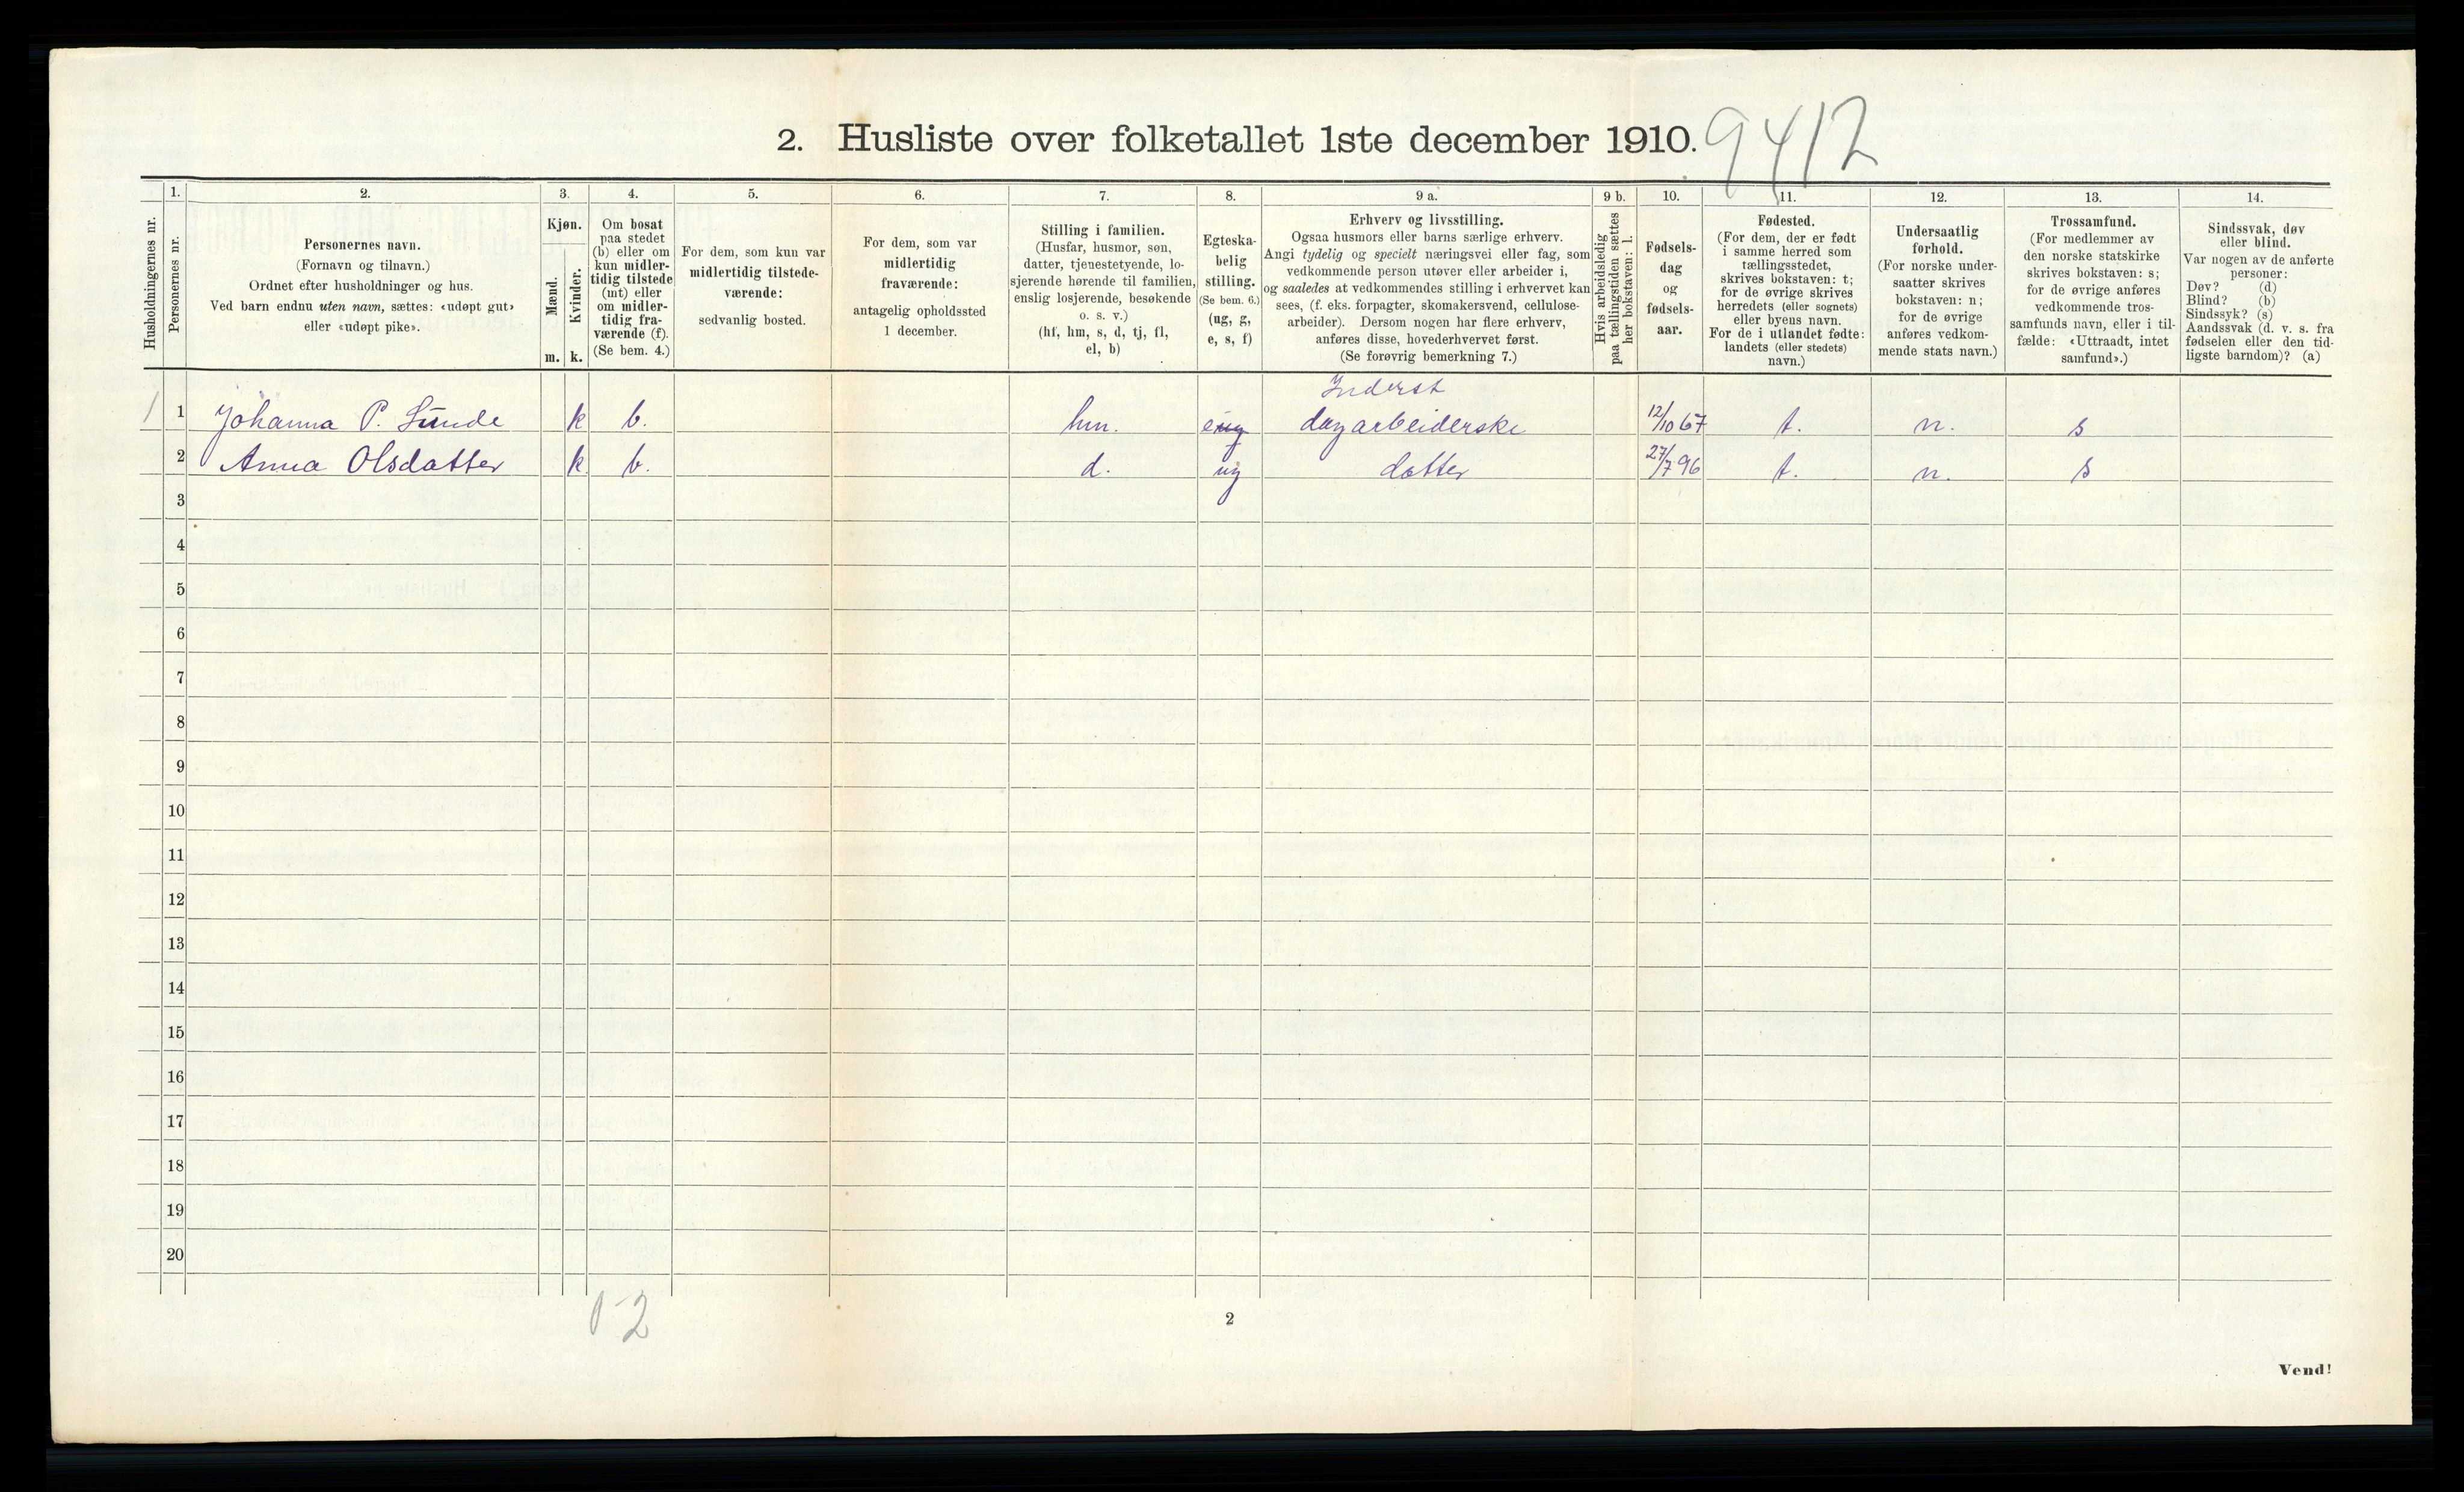 2. Husliste over folketallet 1ste december 1910. 9412
Husholdningernes nr.
1.
Personernes nr.
2.
Personernes navn.
(Fornavn og tilnavn.)
Ordnet efter husholdninger og hus.
Ved barn endnu uten navn, sættes: «udøpt gut»
eller «udøpt pike».
3.
Kjøn.
Mænd.
Kvinder.
m. k.
4.
Om bosat
paa stedet
(b) eller om
kun midler-
tidig tilstede
(mt) eller
om midler-
tidig fra-
værende (f).
(Se bem. 4.)
5.
For dem, som kun var
midlertidig tilstede-
værende:
sedvanlig bosted.
6.
For dem, som var
midlertidig
fraværende:
antagelig opholdssted
1 december.
7.
Stilling i familien.
(Husfar, husmor, søn,
datter, tjenestetyende, lo-
sjerende hørende til familien,
enslig losjerende, besøkende
o. s. v.)
(hf, hm, s, d, tj, fl,
el, b)
8.
Egteska-
belig
stilling.
(Se bem. 6.)
(ug, g,
e, s, f)
9 a.
Erhverv og livsstilling.
Ogsaa husmors eller barns særlige erhverv.
Angi tydelig og specielt næringsvei eller fag, som
vedkommende person utøver eller arbeider i,
og saaledes at vedkommendes stilling i erhvervet kan
sees, (f. eks. forpagter, skomakersvend, cellulose-
arbeider). Dersom nogen har flere erhverv,
anføres disse, hovederhvervet først.
(Se forøvrig bemerkning 7.)
9 b.
Hvis arbeidsledig
paa tællingstiden sættes
her bokstaven: l.
10.
Fødsels-
dag
og
fødsels-
aar.
11.
Fødested.
(For dem, der er født
i samme herred som
tællingsstedet,
skrives bokstaven: t;
for de øvrige skrives
herredets (eller sognets)
eller byens navn.
For de i utlandet fødte:
landets (eller stedets)
navn.)
12.
Undersaatlig
forhold.
(For norske under-
saatter skrives
bokstaven: n;
for de øvrige
anføres vedkom-
mende stats navn.)
13.
Trossamfund.
(For medlemmer av
den norske statskirke
skrives bokstaven: s;
for de øvrige anføres
vedkommende tros-
samfunds navn, eller i til-
fælde: «Uttraadt, intet
samfund».)
14.
Sindssvak, døv
eller blind.
Var nogen av de anførte
personer:
Døv? (d)
Blind? (b)
Sindssyk? (s)
Aandssvak (d. v. s. fra
fødselen eller den tid-
ligste barndom)? (a)
Inderst
1 1 Johanna P. Sunde k b. hm. e dagarbeiderske 12/10 67 t. n. s
2 Anna Olsdatter k b. d. ug datter 27/7 96 t. n. s
3
4
5
6
7
8
9
10
11
12
13
14
15
16
17
18
19
20
0-2
2
Vend!